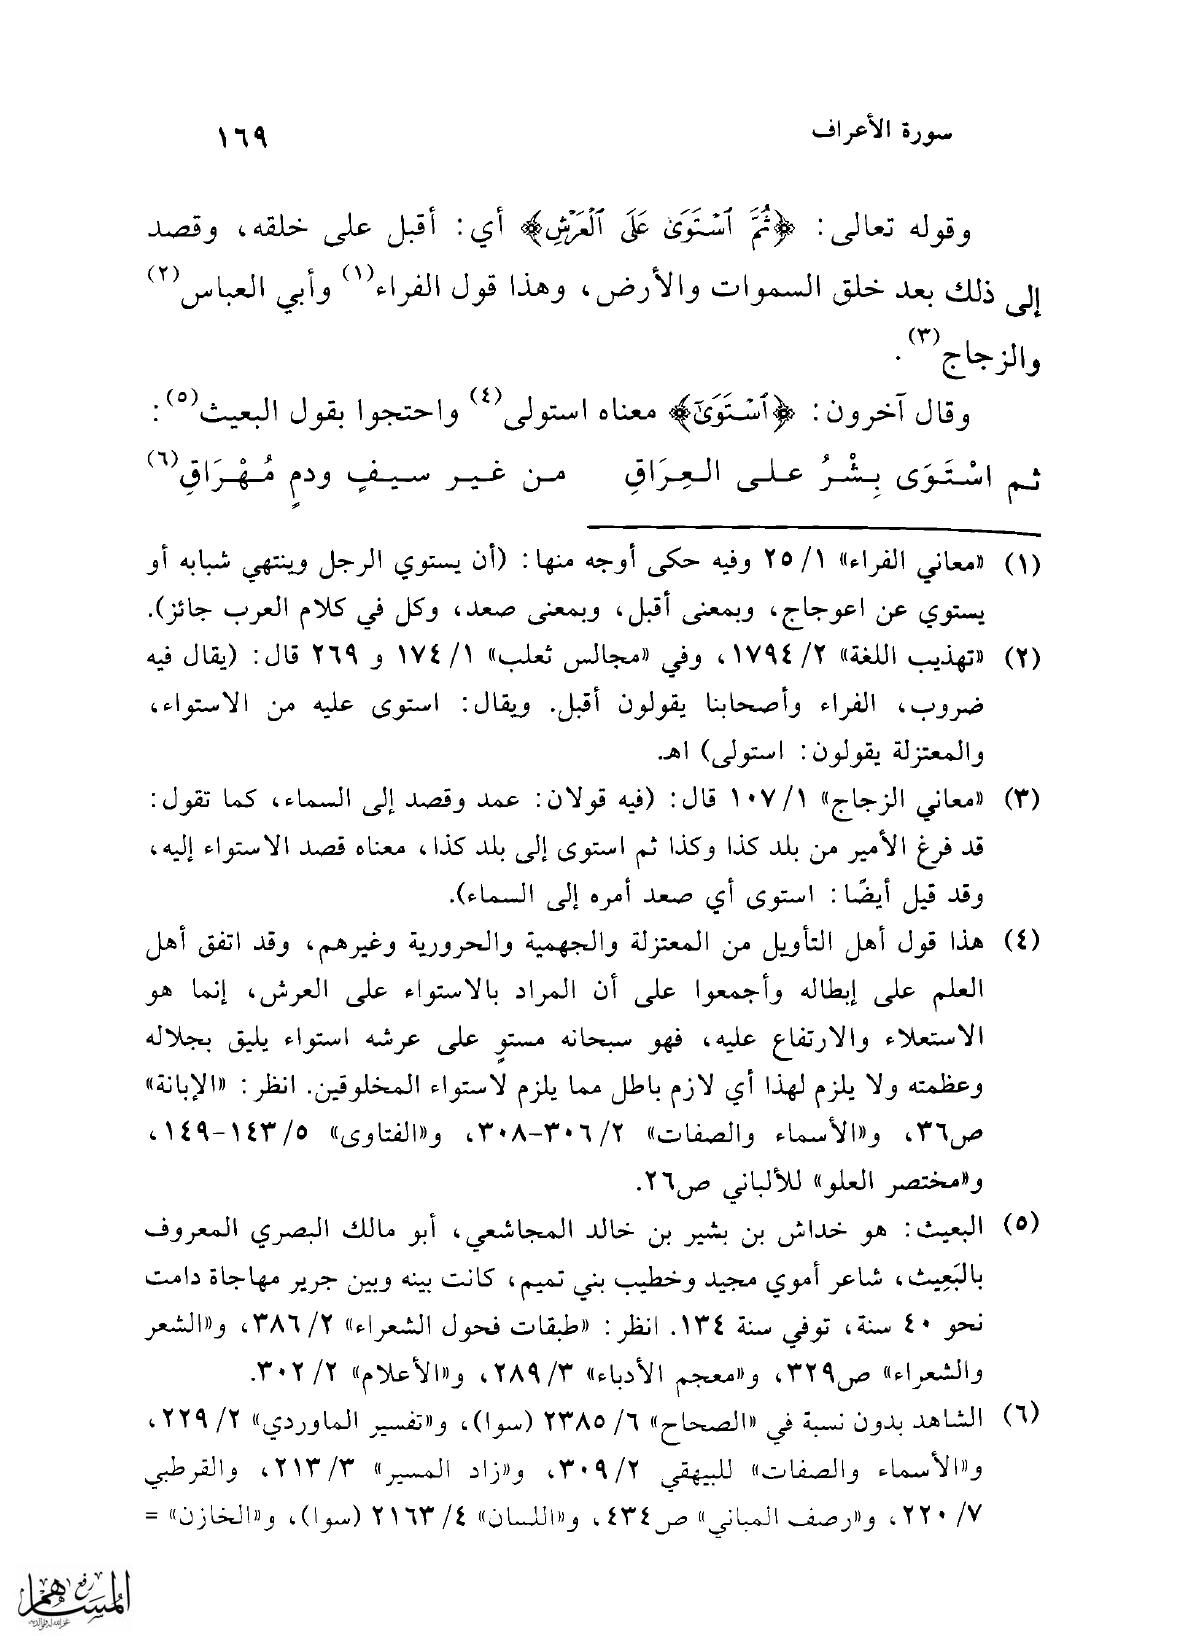 سورة الأعراف ١٦٩
وقوله تعالى: ﴿ثُمَّ ٱسْتَوَىٰ عَلَى ٱلْعَرْشِ﴾ أي: أقبل على خلقه، وقصد
إلى ذلك بعد خلق السموات والأرض، وهذا قول الفراء(١) وأبي العباس(٢)
والزجاج(٣).
وقال آخرون: ﴿ٱسْتَوَىٰٓ﴾ معناه استولى(٤) واحتجوا بقول البعيث(٥):
ثم اسْتَوَى بِشْرُ على العِرَاقِ من غير سيفٍ ودمٍ مُهْرَاقِ(٦)
(١) «معاني الفراء» ١/ ٢٥ وفيه حكى أوجه منها: (أن يستوي الرجل وينتهي شبابه أو
يستوي عن اعوجاج، وبمعنى أقبل، وبمعنى صعد، وكل في كلام العرب جائز).
(٢) «تهذيب اللغة» ٢/ ١٧٩٤، وفي «مجالس ثعلب» ١/ ١٧٤ و ٢٦٩ قال: (يقال فيه
ضروب، الفراء وأصحابنا يقولون أقبل. ويقال: استوى عليه من الاستواء،
والمعتزلة يقولون: استولى) اهـ.
(٣) «معاني الزجاج» ١/ ١٠٧ قال: (فيه قولان: عمد وقصد إلى السماء، كما تقول:
قد فرغ الأمير من بلد كذا وكذا ثم استوى إلى بلد كذا، معناه قصد الاستواء إليه،
وقد قيل أيضًا: استوى أي صعد أمره إلى السماء).
(٤) هذا قول أهل التأويل من المعتزلة والجهمية والحرورية وغيرهم، وقد اتفق أهل
العلم على إبطاله وأجمعوا على أن المراد بالاستواء على العرش، إنما هو
الاستعلاء والارتفاع عليه، فهو سبحانه مستوٍ على عرشه استواء يليق بجلاله
وعظمته ولا يلزم لهذا أي لازم باطل مما يلزم لاستواء المخلوقين. انظر: «الإبانة»
ص٣٦، و«الأسماء والصفات» ٢/ ٣٠٦-٣٠٨، و«الفتاوى» ٥/ ١٤٣-١٤٩،
و«مختصر العلو» للألباني ص٢٦.
(٥) البعيث: هو خداش بن بشير بن خالد المجاشعي، أبو مالك البصري المعروف
بالبَعِيث، شاعر أموي مجيد وخطيب بني تميم، كانت بينه وبين جرير مهاجاة دامت
نحو ٤٠ سنة، توفي سنة ١٣٤. انظر: «طبقات فحول الشعراء» ٢/ ٣٨٦، و«الشعر
والشعراء» ص٣٢٩، و«معجم الأدباء» ٣/ ٢٨٩، و«الأعلام» ٢/ ٣٠٢.
(٦) الشاهد بدون نسبة في «الصحاح» ٦/ ٢٣٨٥ (سوا)، و«تفسير الماوردي» ٢/ ٢٢٩،
و«الأسماء والصفات» للبيهقي ٢/ ٣٠٩، و«زاد المسير» ٣/ ٢١٣، والقرطبي
٧/ ٢٢٠، و«رصف المباني» ص٤٣٤، و«اللسان» ٤/ ٢١٦٣ (سوا)، و«الخازن» =